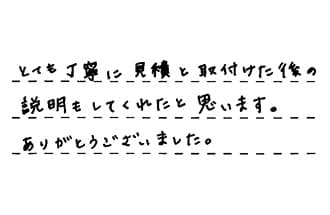 とても丁寧に見積と取付けた後の
説明もしてくれたと思います。
ありがとうございました。